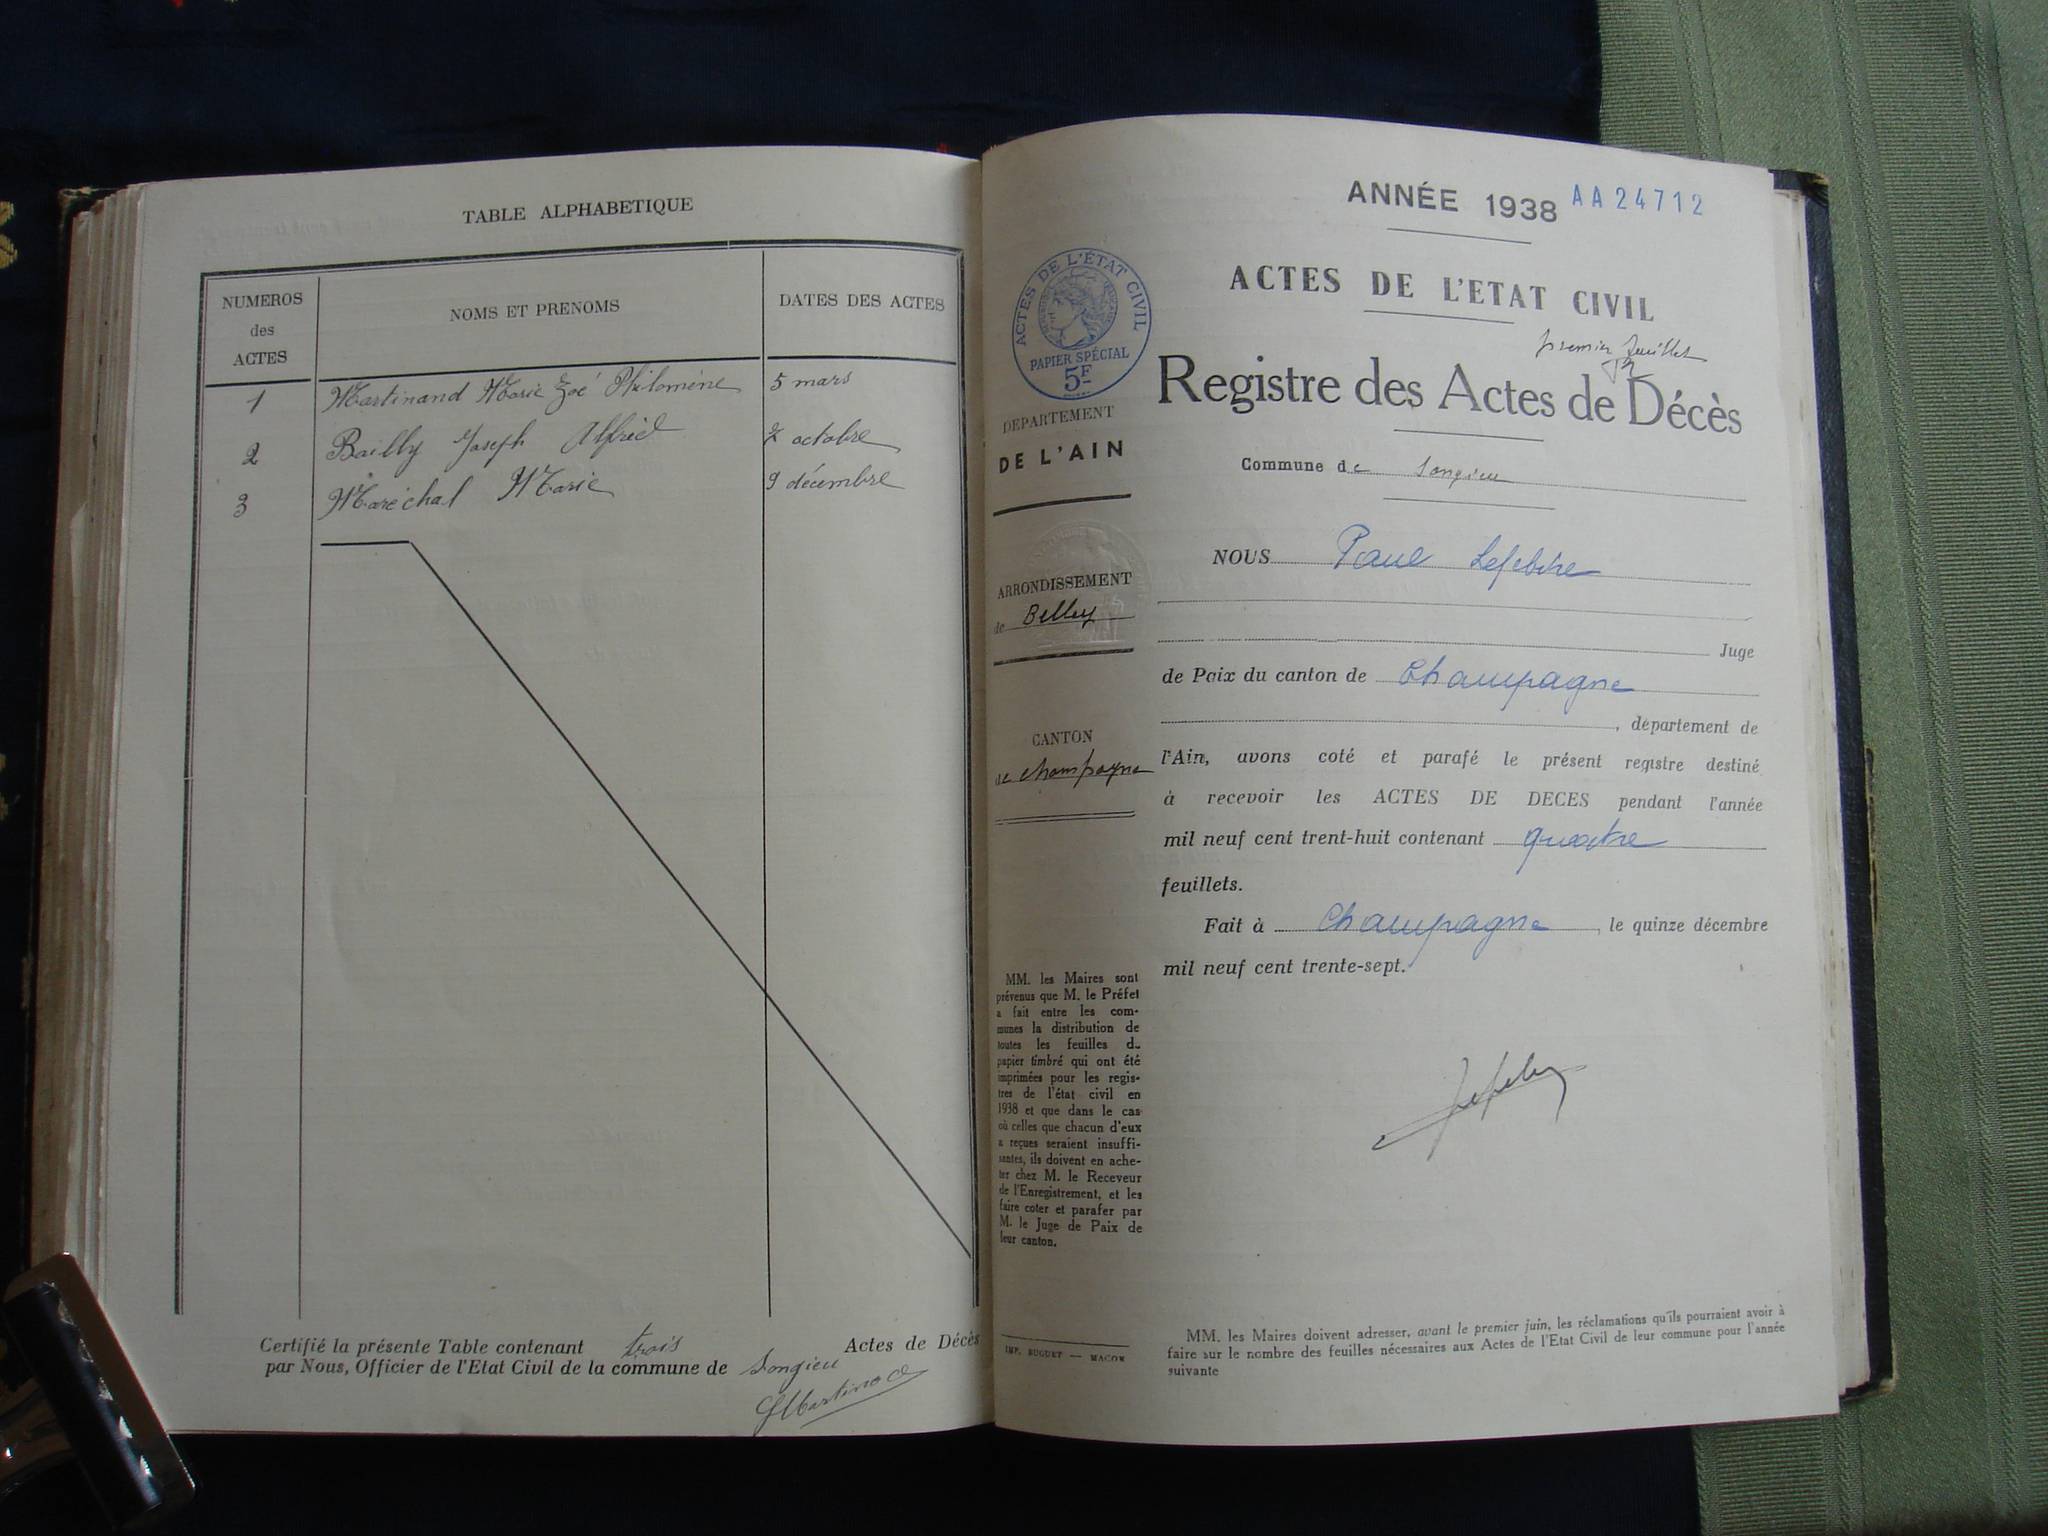 TABLE ALPHABETIQUE
NUMEROS
des
ACTES
NOMS ET PRENOMS
DATES DES ACTES
1 Martinand Marie Zoé Philomène 5 mars
2 Bailly Joseph Alfred 7 octobre
3 Maréchal Marie 9 décembre
Certifié la présente Table contenant trois Actes de Décès
par Nous, Officier de l'Etat Civil de la commune de Songieu
ANNÉE 1938 AA24712
ACTES DE L'ÉTAT CIVIL
PAPIER SPÉCIAL
5F
DEPARTEMENT
DE L'AIN
ARRONDISSEMENT
de Belley
CANTON
de Champagne
MM. les Maires sont
prévenus que M. le Préfet
a fait entre les com-
munes la distribution de
toutes les feuilles du
papier timbré qui ont été
imprimées pour les regis-
tres de l'état civil en
1938 et que dans le cas
où celles que chacun d'eux
a reçues seraient insuffi-
santes, ils doivent en ache-
ter chez M. le Receveur
de l'Enregistrement, et les
faire coter et parafer par
M. le Juge de Paix de
leur canton.
IMP. BUGUET — MACON
ACTES DE L'ETAT CIVIL
premier feuillet
Registre des Actes de Décès
Commune de Songieu
NOUS Paul Lefebvre
Juge
de Paix du canton de Champagne
, département de
l'Ain, avons coté et parafé le présent registre destiné
à recevoir les ACTES DE DECES pendant l'année
mil neuf cent trent-huit contenant quatre
feuillets.
Fait à Champagne, le quinze décembre
mil neuf cent trente-sept.
MM. les Maires doivent adresser, avant le premier juin, les réclamations qu'ils pourraient avoir à
faire sur le nombre des feuilles nécessaires aux Actes de l'Etat Civil de leur commune pour l'année
suivante